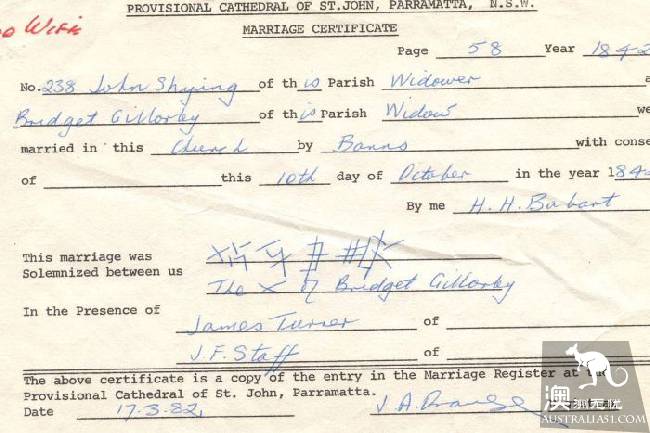 PROVISIONAL CATHEDRAL OF ST.JOHN, PARRAMATTA, N.S.W.
MARRIAGE CERTIFICATE
Wife
Page 58 Year 1842
No. 238 John Shying of this Parish Widower
Bridget Gillorby of this Parish Widow
married in this Church by Banns with conse
of this 10th day of October in the year 184
By me H. H. Bobart
This marriage was
Solemnized between us
The X of Bridget Gillorby
In the Presence of
James Turner of
J.F. Staff of
The above certificate is a copy of the entry in the Marriage Register at the
Provisional Cathedral of St. John, Parramatta.
Date 17.3.82. J.A.
澳
AUSTRALIA51.COM